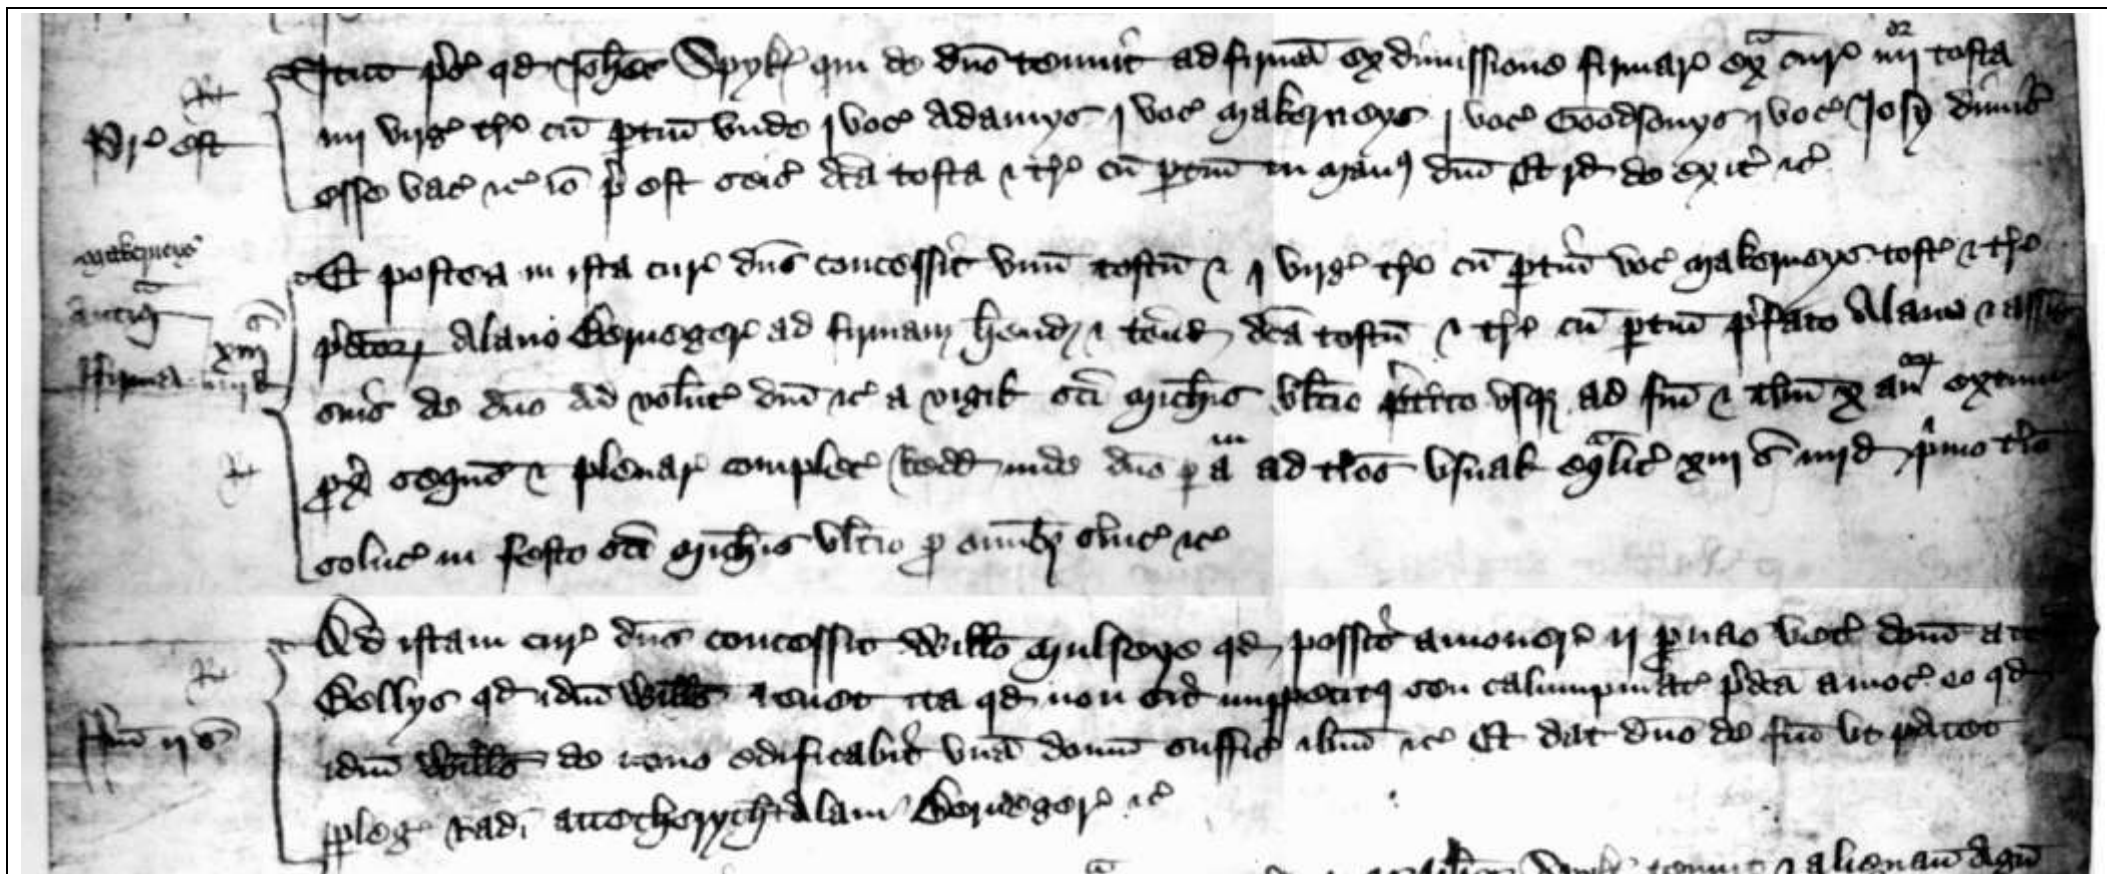 Pre est
Item pre qd Johes Spyk qui de dno tenuit ad firma ex dimissione firmar ex cur iiii tofta
iiii virg tre cu ptin unde j voc Adamys j voc Makerneys j voc Goodsonys j voc Josy dimis
esse vac &c io p est seis dca tofta & tre cu ptin in man dni Et rd de exit &c
Makerneys
antiq
ffirma xiii s iiii d
Et postea in ista cur dns concessit unu toftu & j virg tre cu ptin voc Makerneys toft & tre
pdcor Alano Berneger ad firmam hend & tend dca toftu & tre cu ptin pfato Alano & assig
suis de dno ad volut dni &c a vigil sci Michis ultio pterito usq ad fin & tmin x an extunc
px sequen & plenar complet Redd inde dno p a ad tios usual eqalit xiii s iiii d pimo tio
solut in festo sci Michis ultio p omib svic &c
ffin ii s
Ad istam cur dns concessit Willo Mulseye qd possit amovere ii vet domu
Bellys qd idm Wills tenet ita qd non sit impetit seu calumpniat pdca amoc eo qd
idm Wills de novo edificabit una domu suffic ibm &c Et dat dno de fin ut patet
pleg Radi Attechyrch Alani Berneger &c